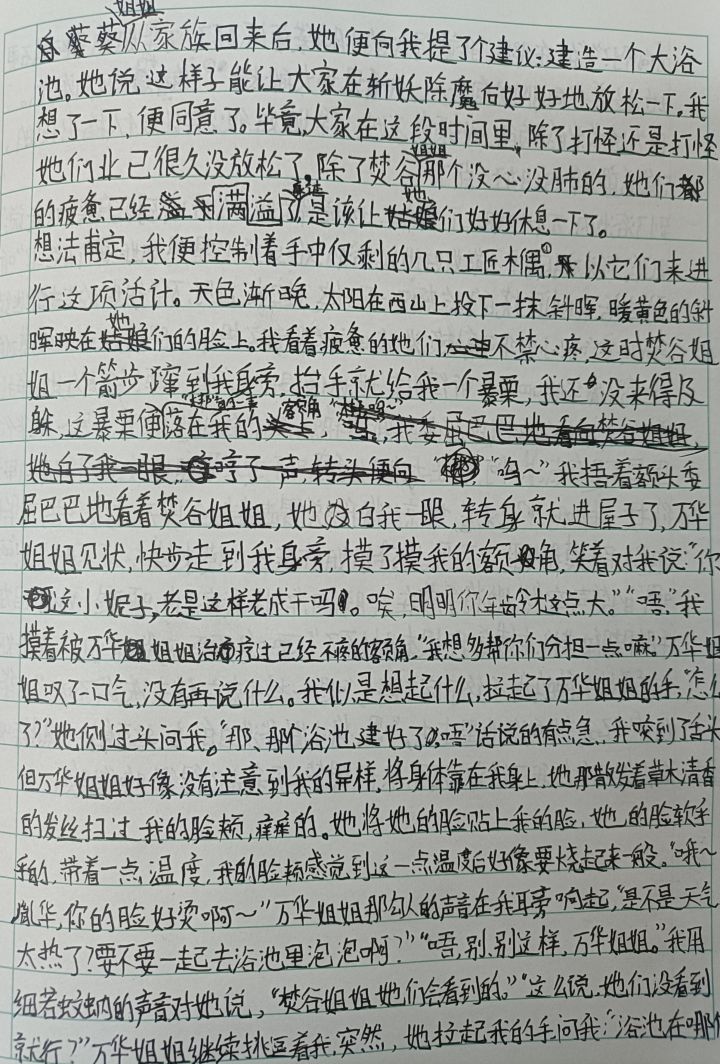 葵姐姐从家族回来后，她便向我提了个建议：建造一个大浴
池。她说这样子能让大家在斩妖除魔后好好地放松一下。我
想了一下，便同意了。毕竟，大家在这段时间里，除了打怪还是打怪
她们业已很久没放松了，除了焚谷姐姐那个没心没肺的，她们都
的疲惫已经满溢了，是该让她们好好休息一下了。
想法甫定，我便控制着手中仅剩的几只工匠木偶，以它们来进
行这项活计。天色渐晚，太阳在西山上投下一抹斜晖，暖黄色的斜
晖映在她们的脸上。我看着疲惫的她们，不禁心疼，这时焚谷姐
姐一个箭步蹿到我身旁，抬手就给我一个暴栗，我还没来得及
躲，这暴栗便落在我的额角，
“呜～”我捂着额头委
屈巴巴地看着焚谷姐姐，她没白我一眼，转身就进屋子了，万华
姐姐见状，快步走到我身旁，摸了摸我的额角，笑着对我说：“你
这小妮子，老是这样老成干吗。唉，明明你年龄才这点大。”“唔，”我
摸着被万华姐姐治疗过已经不疼的额角，“我想多帮你们分担一点嘛。”万华姐
姐叹了一口气，没有再说什么。我似是想起什么，拉起了万华姐姐的手，“怎么
了？”她侧过头问我。“那、那个浴池，建好了，唔”话说的有点急，我咬到了舌头
但万华姐姐好像没有注意到我的异样，将身体靠在我身上，她那散发着草木清香
的发丝扫过我的脸颊，痒痒的。她将她的脸贴上我的脸，她的脸软乎
乎的，带着一点温度，我的脸颊感觉到这一点温度后好像要烧起来一般。“哦～
胤华，你的脸好烫啊～”万华姐姐那勾人的声音在我耳旁响起，“是不是天气
太热了？要不要一起去浴池里泡泡啊？”“唔，别，别这样，万华姐姐。”我用
细若蚊蚋的声音对她说，“焚谷姐姐她们会看到的。”“这么说，她们没看到
就行？”万华姐姐继续挑逗着我，突然，她拉起我的手问我：“浴池在哪